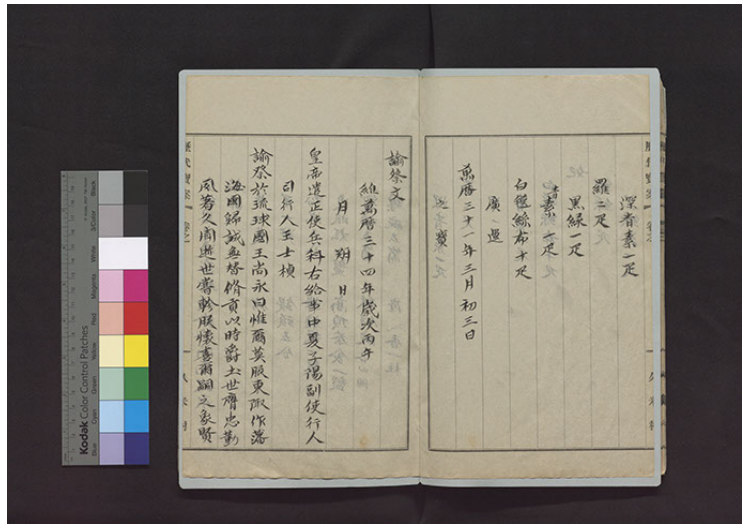 深青素一疋
羅二疋
黑緑一疋
青素一疋
白氁絲布十疋
廣運
之寳
萬暦三十一年三月初三日
諭祭文
維萬曆三十四年歳次丙午
月 朔 日
皇帝遣正使兵科右給事中夏子陽副使行人
司行人王士禎
諭祭於琉球國王尚永曰惟爾奠服東陬作藩
海國歸誠無替脩貢以時爵土世膺忠勤
夙著久聞逝世軫朕懷喜爾嗣之象賢
歷代寳案
卷之
久米村
Kodak Color Control Patches
Blue
Cyan
Green
Yellow
Red
Magenta
White
3/Color
Black